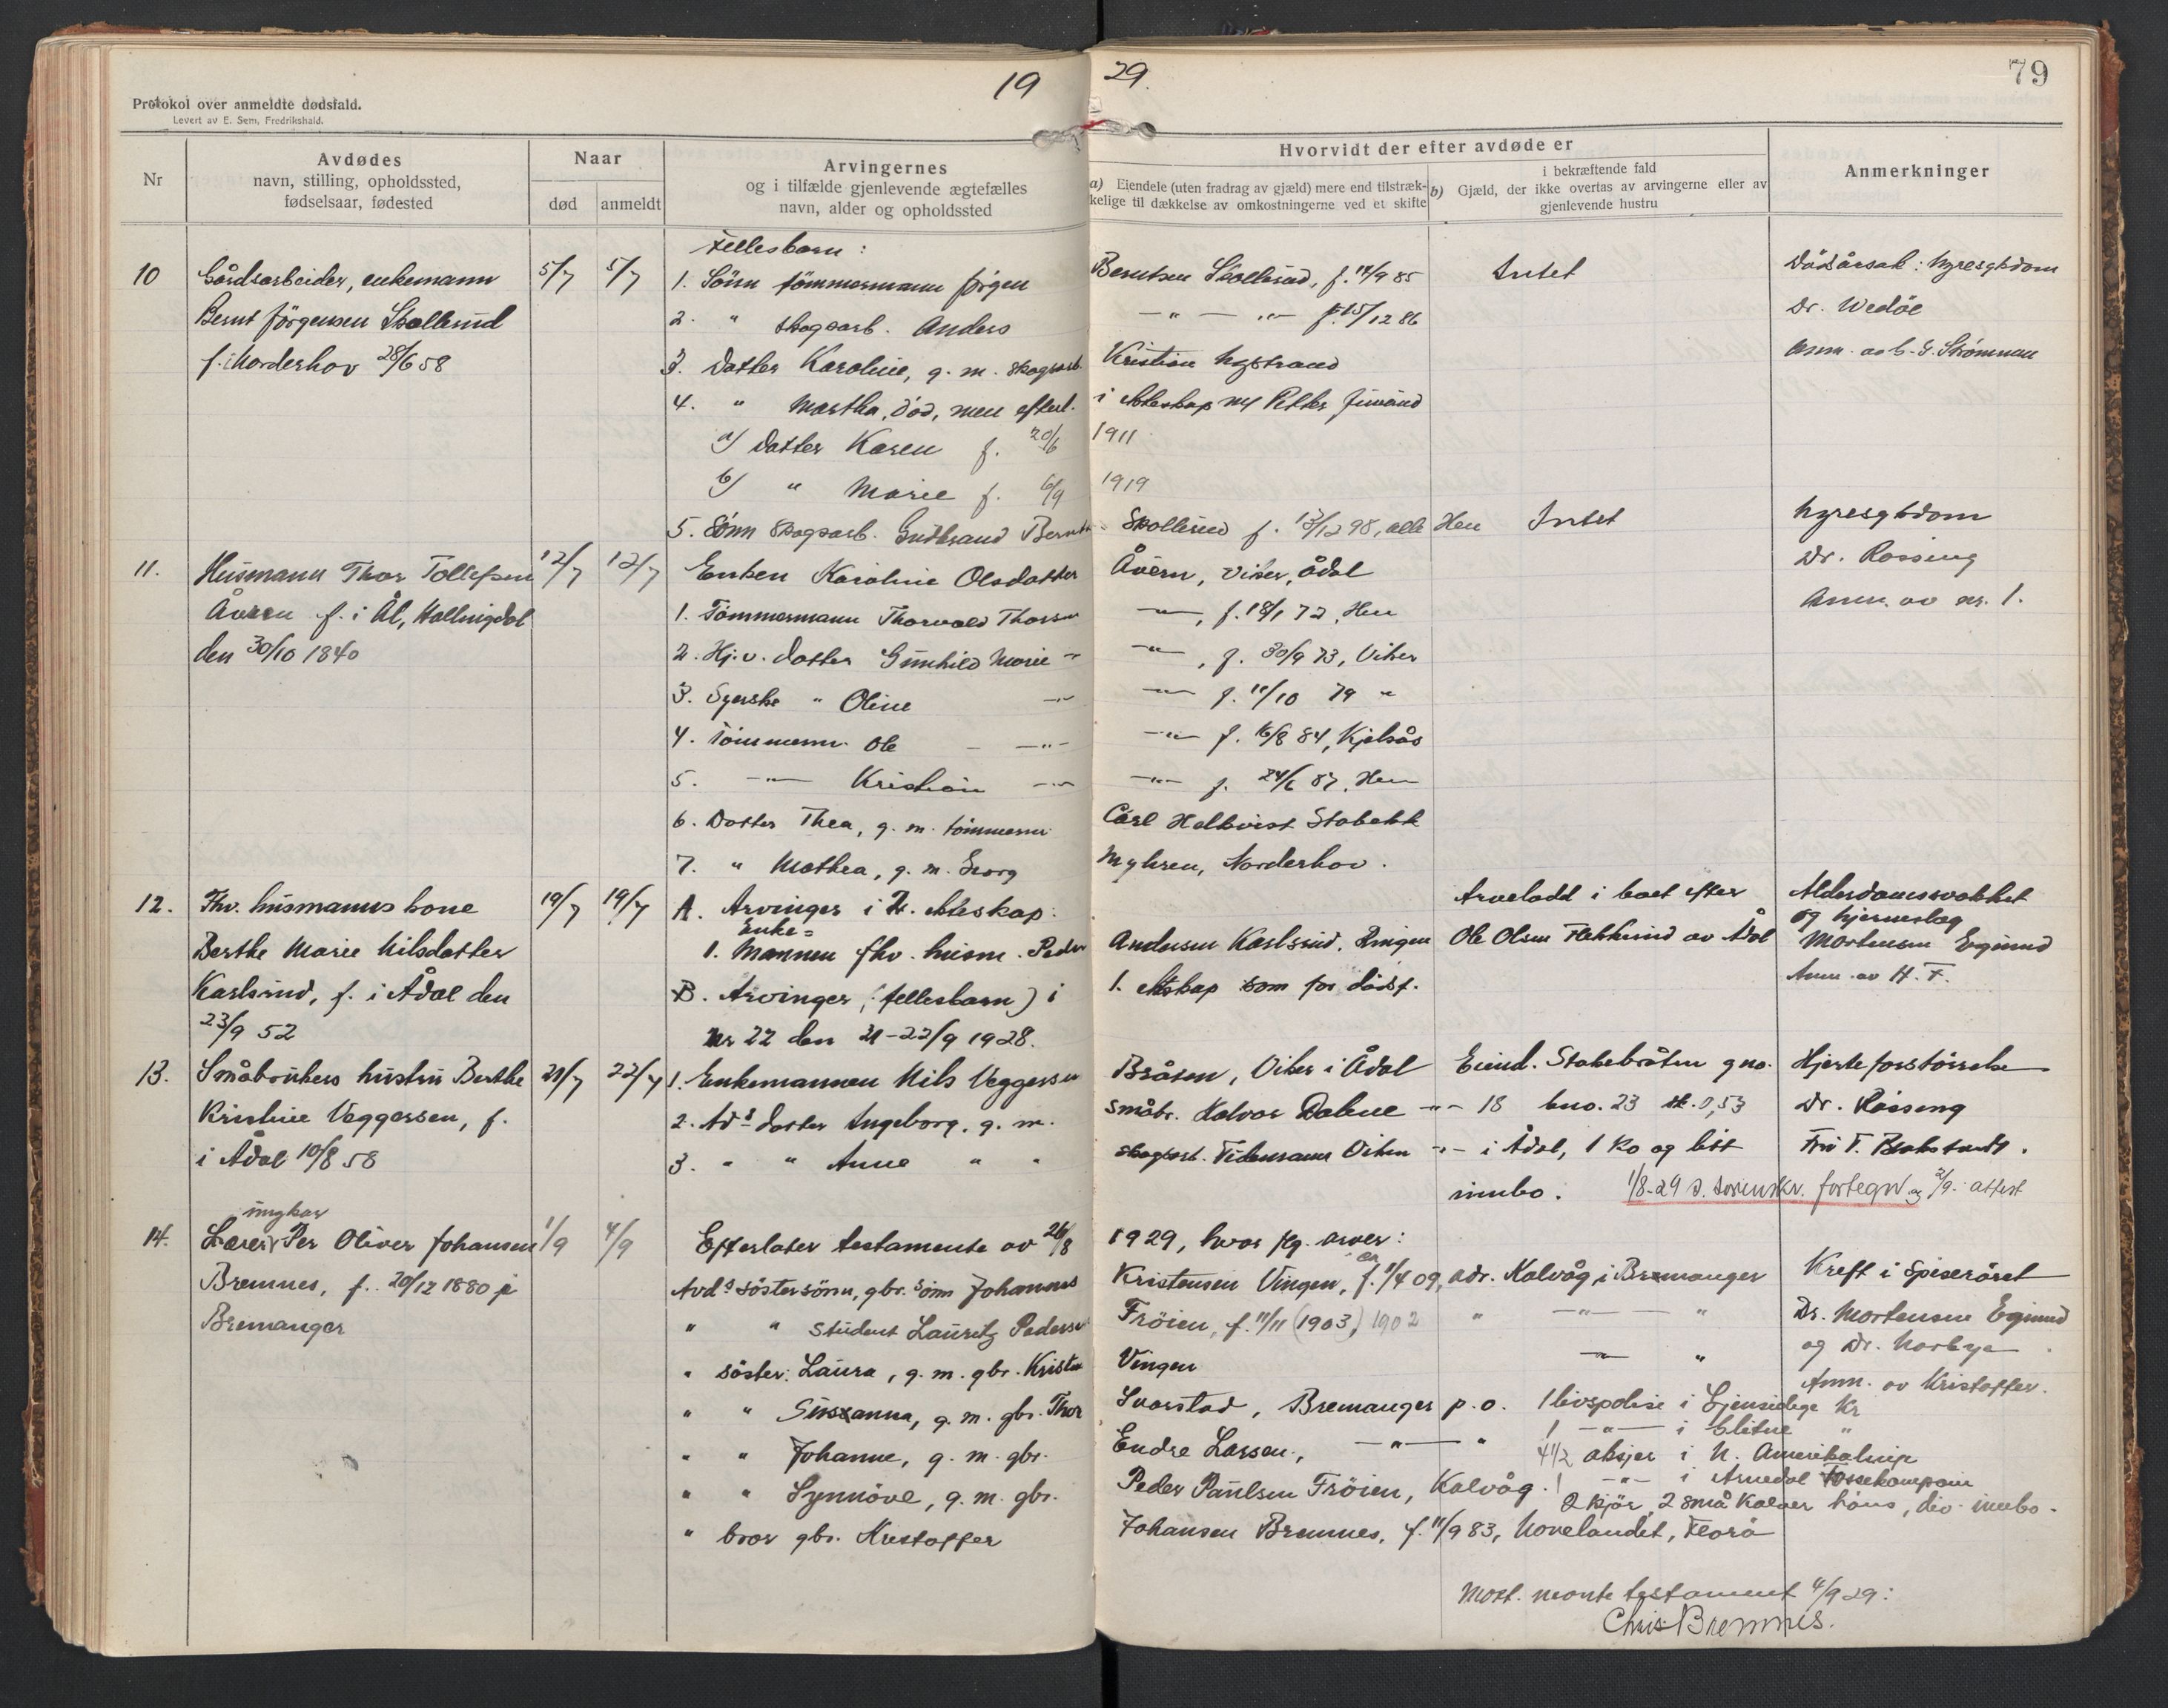 19 29.
79
Protokol over anmeldte dødsfald.
Levert av E. Sem, Fredrikshald.
Nr
Avdødes
navn, stilling, opholdssted,
fødselsaar, fødested
Naar
død
anmeldt
Arvingernes
og i tilfælde gjenlevende ægtefælles
navn, alder og opholdssted
Hvorvidt der efter avdøde er
a) Eiendele (uten fradrag av gjæld) mere end tilstræk-
kelige til dækkelse av omkostningerne ved et skifte
i bekræftende fald
b) Gjæld, der ikke overtas av arvingerne eller av
gjenlevende hustru
Anmerkninger
Fellesbarn:
10 Gårdsarbeider, enkemann 5/7 5/7 1. Sönn tömmermann Jörgen Berntsen Skollerud, f. 14/9 85 Intet Dødsårsak: hyresykdom
Bernt Jörgensen Skollerud 2. " skogsarb. Anders —"— —"— f. 15/12 86 Dr. Wedøe
f. i Norderhov 28/6 58 3. Datter Karoline, g. m. skogsarb. Kristian Nystrand Anm. av G. Strömmen
4. " Martha, död, men efterl. i ekteskap m/ Petter
a) Datter Karen f. 20/6 1911
b) " Marie f. 6/9 1919
5. Sönn skogsarb. Gudbrand Berntsen Skollerud f. 13/12 98, alle Hen Intet hyresykdom
11. Husmann Thor Tollefsen 12/7 12/7 Enken Karoline Olsdatter Åveren, Viker, Ådal Dr. Rossing
Åveren f. i Ål, Hallingdal 1. Tömmermann Thorvald Thorsen —"—, f. 18/1 72, Hen Anm. av nr. 1.
den 30/10 1840 2. Hj.v. datter Gunhild Marie —"— —"—, f. 30/9 73, Viker
3. Syerske " Oline —"— —"— f. 11/10 79 "
4. Tömmerm. Ole —"— —"— f. 16/8 84, Kjelsås
5. —"— Kristian —"— —"— f. 24/6 87, Hen
6. Datter Thea, g. m. tömmerm. Carl Helkvist Stabekk
7. " Mathea, g. m. Georg Myhren, Norderhov.
12. Fhv. husmanns kone 19/7 19/7 A. Arvinger i 2. ekteskap: Arvelodd i boet efter Alderdomssvakhet
Enke= og hjerneslag
Berthe Marie Nilsdatter 1. Mannen fhv. husm. Peder Andersen Karlsrud, Ringen Ole Olsen Flakkerud av Ådal Mortensen Engmund
Karlsrud, f. i Ådal den B. Arvinger (fellesbarn) i 1. ekteskap som for dödsf. Anm. av H. F.
23/9 52 nr 22 den 21-22/9 1928.
13. Småbrukers hustru Berthe 21/7 22/7 1. Enkemannen Nils Veggersen Bråten, Viker i Ådal Eiend. Stakebråten gno. Hjerteforstörrelse
Kristine Veggersen, f. 2. Avds datter Ingeborg, g. m. småbr. Halvor Dalene —"— 18 bno. 23 sk. 0,53 Dr. Rössing
i Ådal 10/8 58 3. " " Anne " " skogsarb. Tidemann Viken —"— i Ådal, 1 ko og litt Fru T.
innbo. 1/8-29 s. sorenskr. fortegn og 2/9. attest
ungkar
14. Lærer Per Oliver Johansen 1/9 4/9 Efterlater testamente av 26/8 1929, hvor flg. arver:
Bremnes, f. 20/12 1880 på Avds söstersönn, gbr. sönn Johannes Kristensen Vingen, f. 1/4 09, adr. Kalvåg i Bremanger Kreft i spiserøret
Bremanger " " student Lauritz Pedersen Fröien, f. 11/11 (1903) 1902 " —"— " Dr. Mortensen Engmund
og Dr. Norbye
" söster: Laura, g. m. gbr. Kristen Vingen —"— " Anm. av Kristoffer.
" " Susanna, g. m. gbr. Thor Svarstad, Bremanger p. o. 1 livspolise i Gjensidige Kr
1 —"— i Glitne "
" " Johanne, g. m. gbr. Endre Larsen, —"— " 4 1/2 aksjer i N. Amerikalinje
1 —"— i Arendal Fossekompani
" " Synnöve, g. m. gbr. Peder Paulsen Fröien, Kalvåg.
2 kjör, 2 små kalver, höns, div. innbo.
" bror gbr. Kristoffer Johansen Bremnes, f. 11/9 83, Hovelandet, Florö
Mott. nevnte testament 4/9 29:
Chris Bremnes.